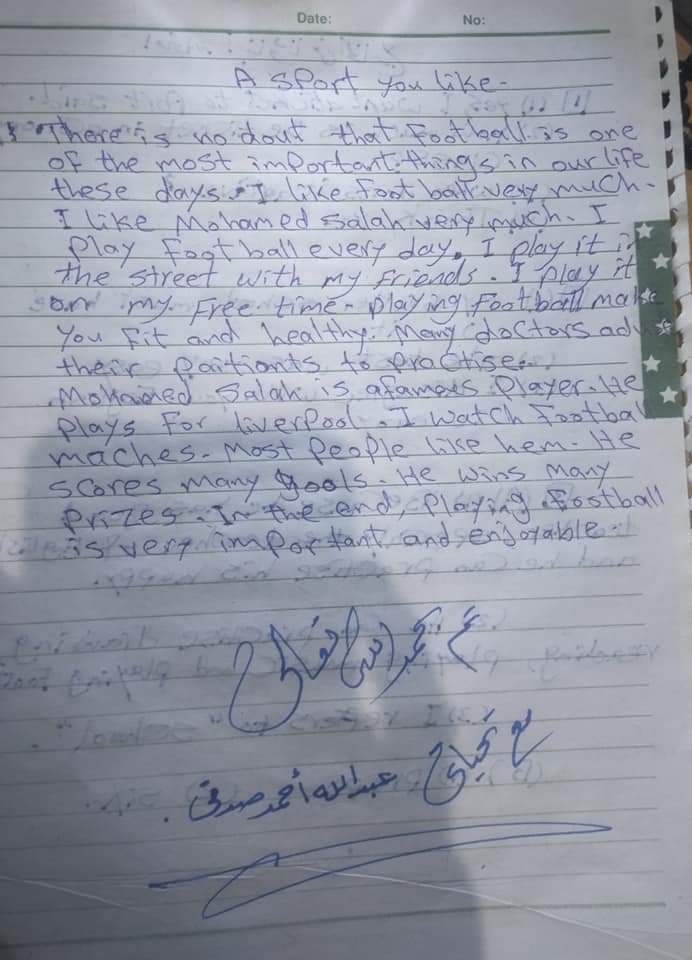 Date: No:
A sport you like-
There is no dout that football is one
of the most important things in our life
these days. I like football very much.
I like Mohamed Salah very much. I
play football every day. I play it
the street with my friends. I play it
on my free time- playing football make
you fit and healthy. Many doctors
their paitiants to practise.
Mohamed Salah is afamous player. He
plays for liverpool. I watch Footbal
maches. Most people like hem. He
scores many gools. He wins many
prizes. In the end, playing football
is very important and enjoyable.
عبدالله أحمد صدقى